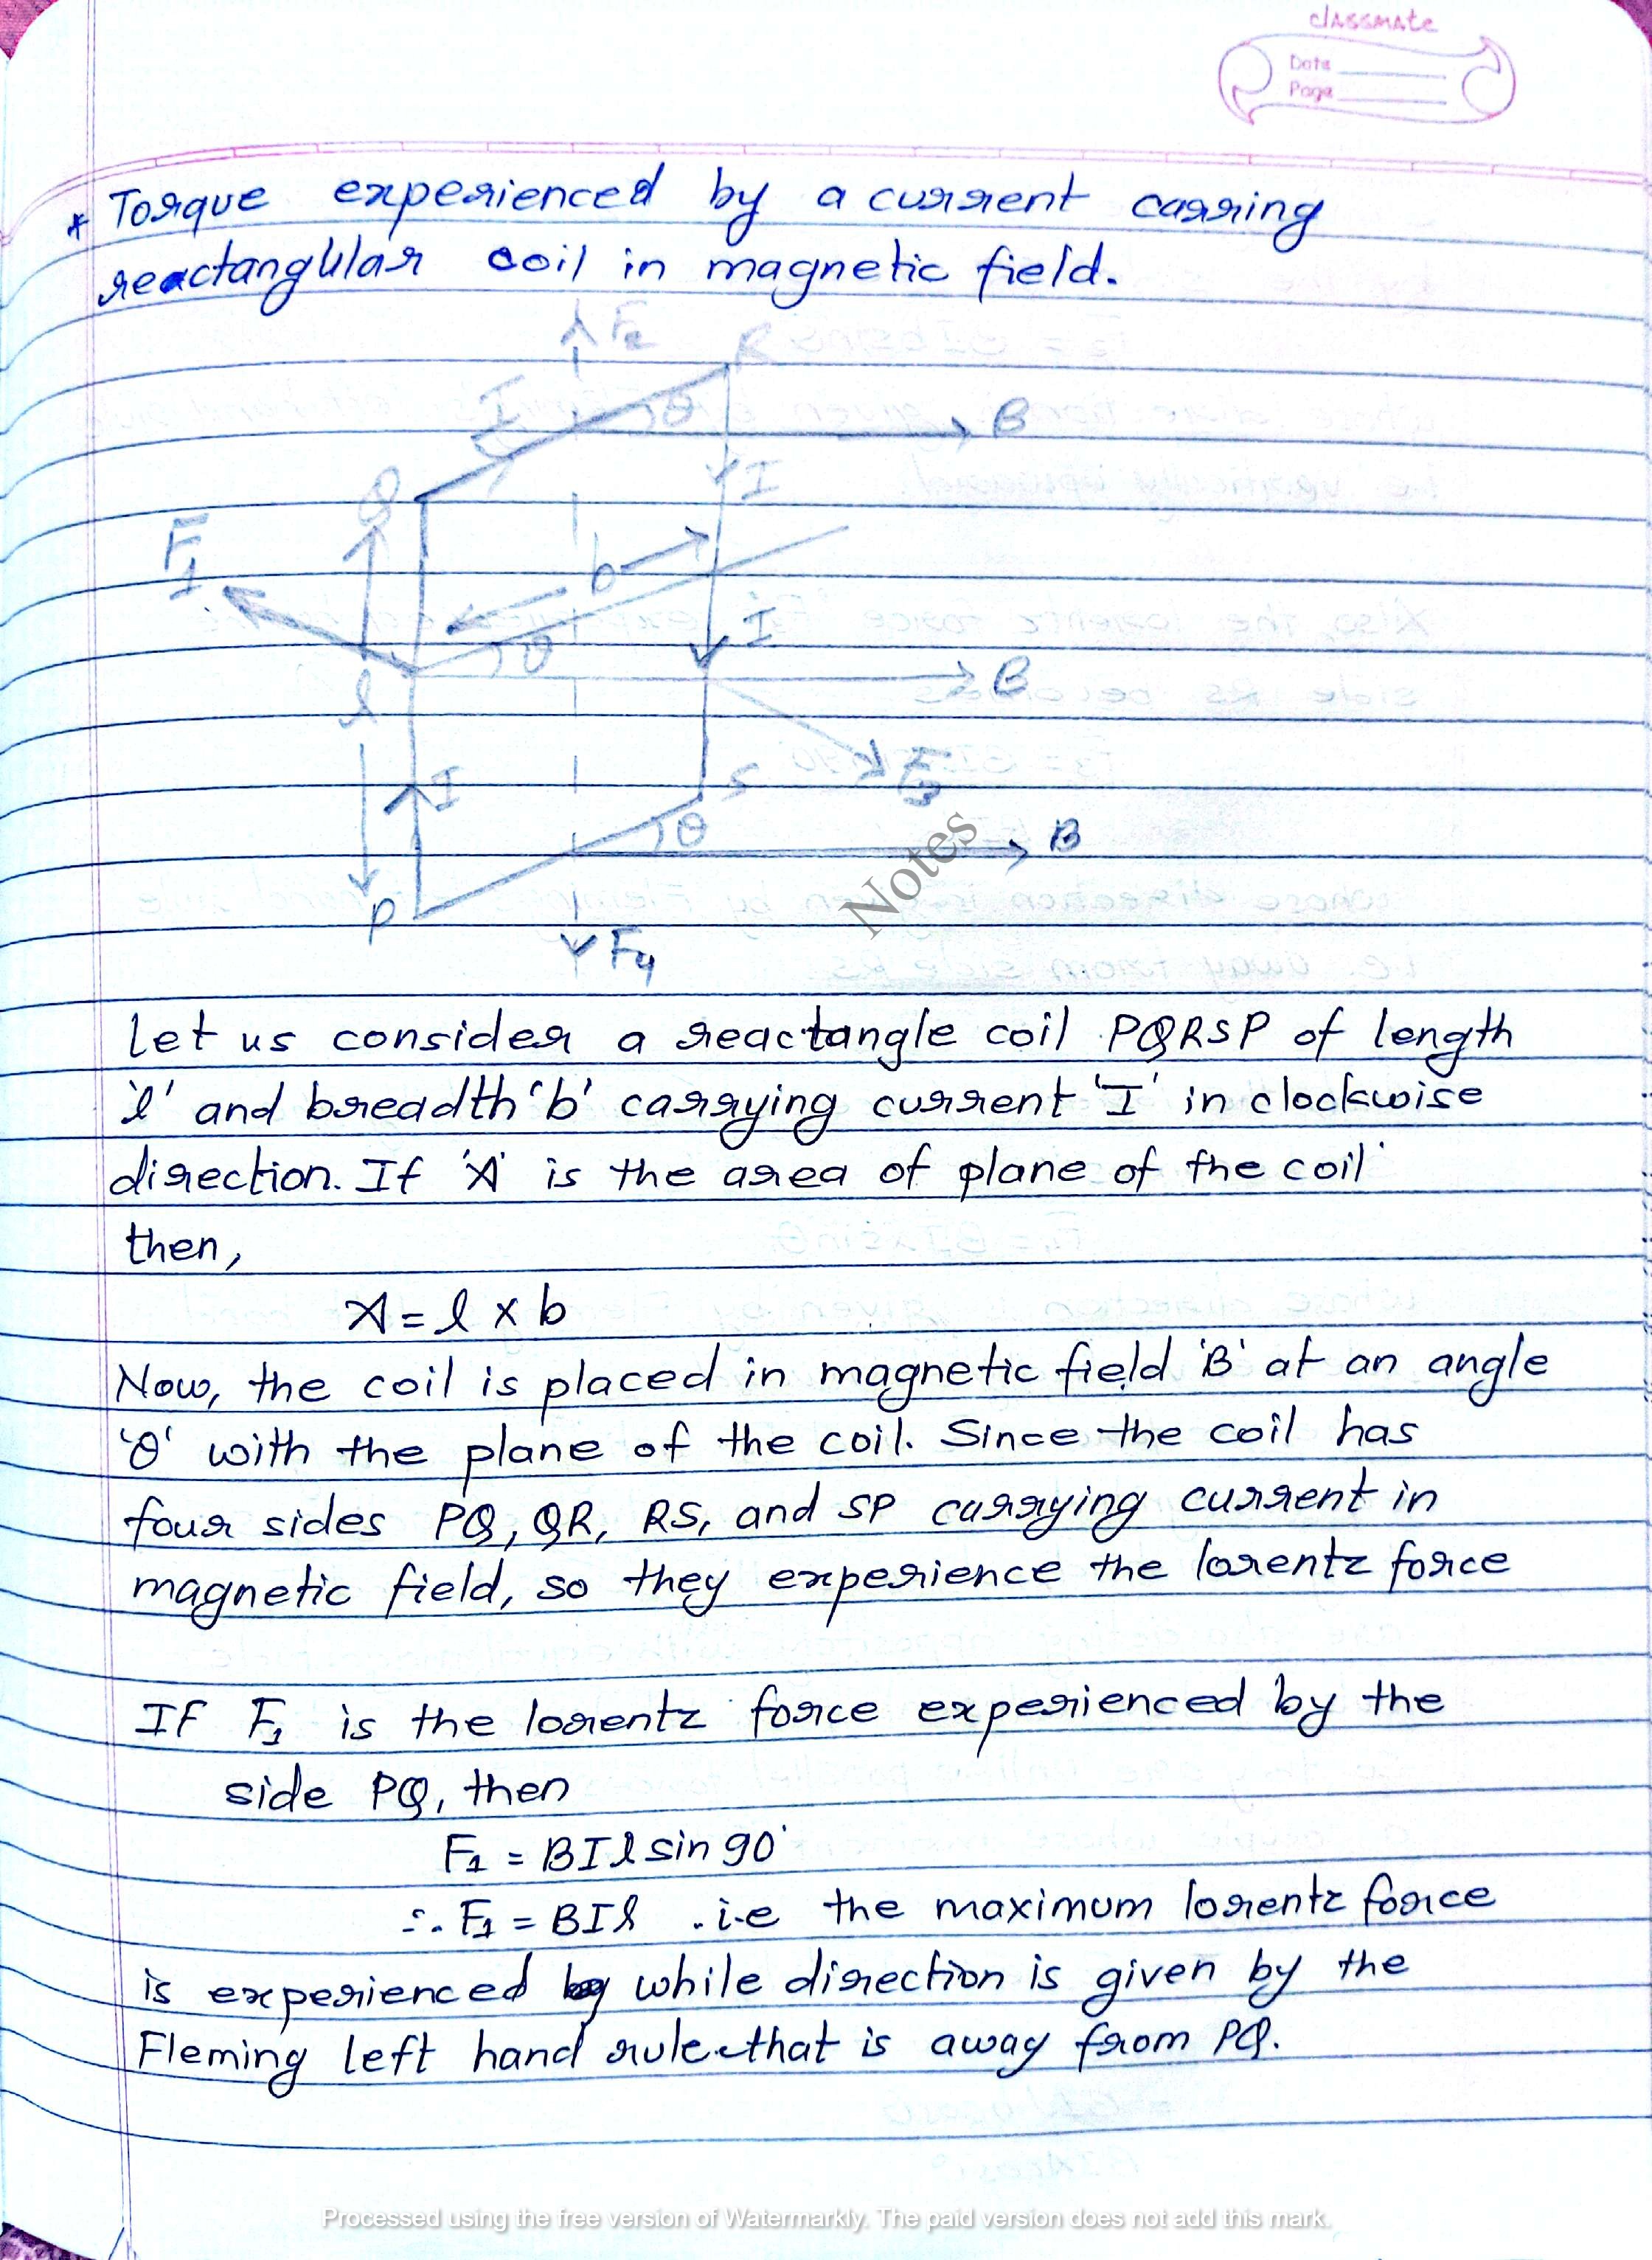 classmate
Date
Page
* Torque experienced by a current carring
reactangular coil in magnetic field.
F2
R
I
θ
B
Q
I
F1
b
I
θ
B
l
I
S
F3
θ
B
P
F4
Notes
Let us consider a reactangle coil PQRSP of length
'l' and breadth 'b' carrying current 'I' in clockwise
direction. If 'A' is the area of plane of the coil
then,
A = l x b
Now, the coil is placed in magnetic field 'B' at an angle
'θ' with the plane of the coil. Since the coil has
four sides PQ, QR, RS, and SP carrying current in
magnetic field, so they experience the lorentz force
If F1 is the lorentz force experienced by the
side PQ, then
F1 = BIl sin 90°
∴ F1 = BIl . i.e the maximum lorentz force
is experienced by while direction is given by the
Fleming left hand rule that is away from PQ.
Processed using the free version of Watermarkly. The paid version does not add this mark.